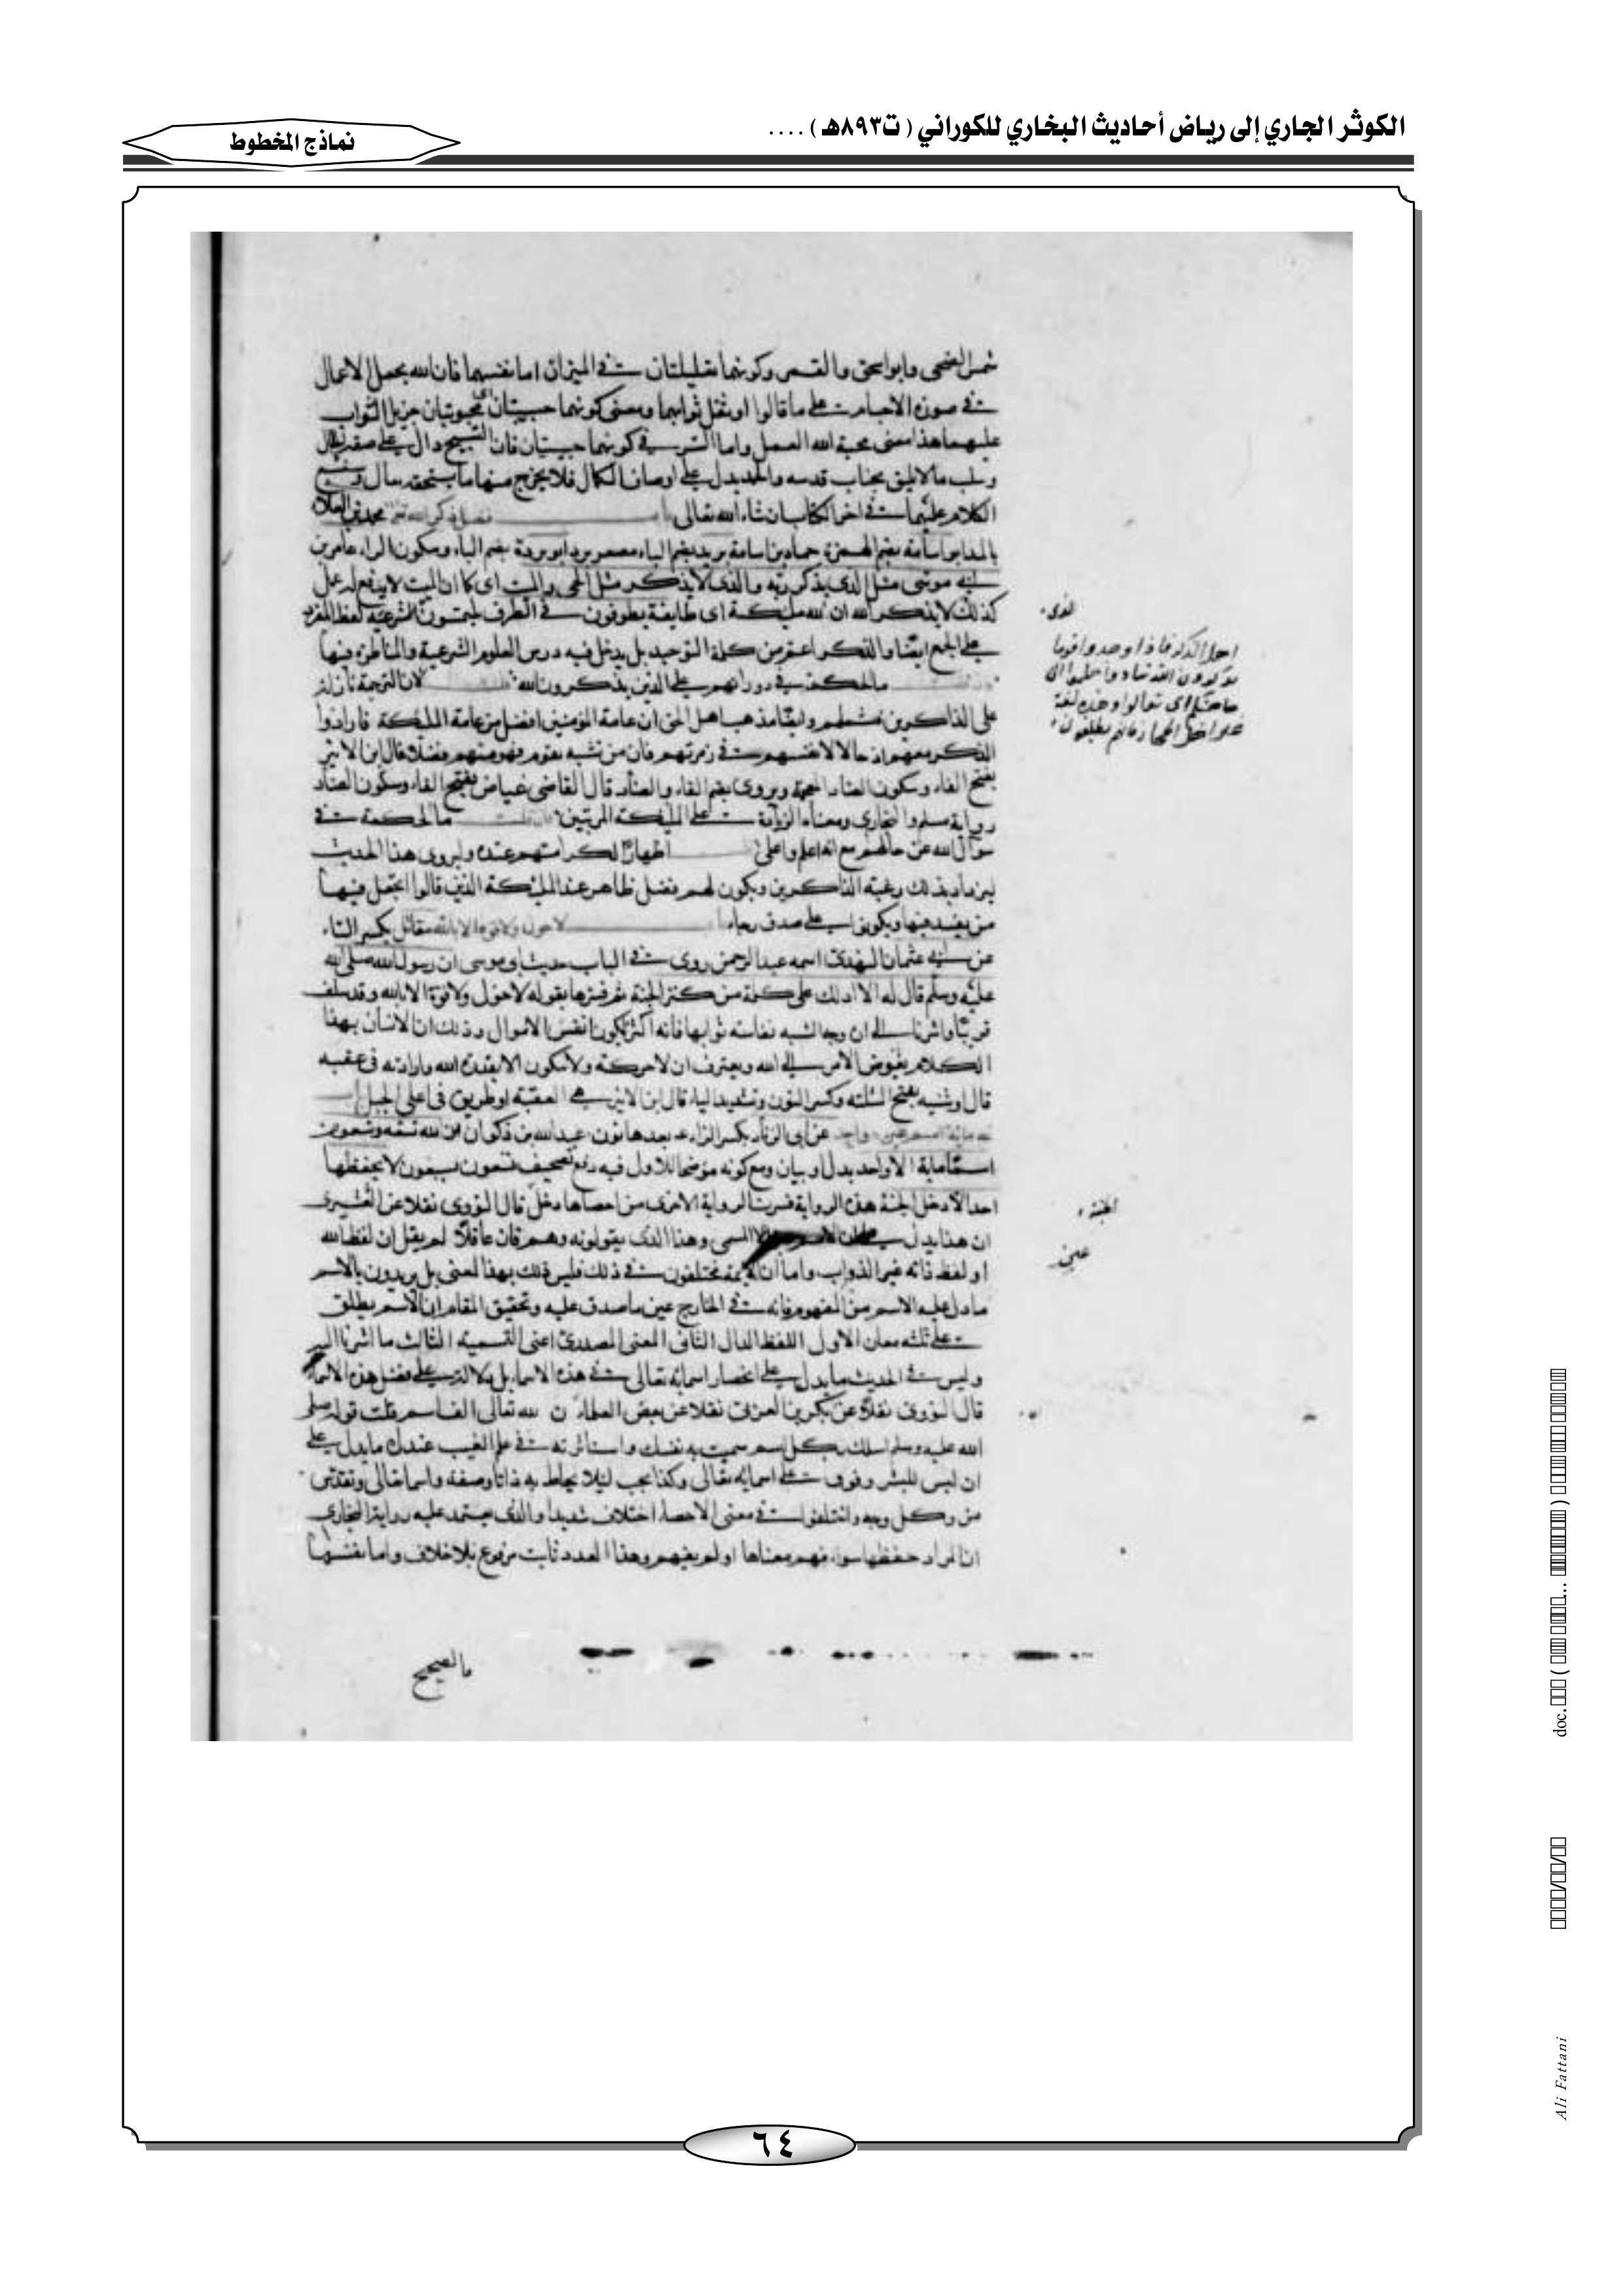 الكوثر الجاري إلى رياض أحاديث البخاري للكوراني ( ت٨٩٣هـ ) ....
نماذج المخطوط
شمس الضحى وابو اسحق والقمر وكونهما ثقيلتان في الميزان اما بنفسهما فان الله يجعل الاعمال
في صورة الاجسام على ما قالوا او ثقل ثوابهما ومعنى كونهما حبيبتان اي محبوبتان جزيل الثواب
عليهما هذا معنى محبة الله العمل واما السر في كونهما حبيبتان فان التسبيح دال على
وسلب ما لا يليق بجناب قدسه والحمد يدل على اوصاف الكمال فلا يخرج منها ما يستحقه
الكلام عليهما في اخر الكتاب ان شاء الله تعالى باب فضل ذكر الله محمد بن العلاء
بالمد ابو اسامة بضم الهمزة حماد بن اسامة بريد بضم الباء مصغر برد ابو بردة بضم الباء وسكون الراء عامر بن
ابي موسى مثل الذي يذكر ربه والذي لا يذكر مثل الحي والميت اى كما ان الميت لا ينفع له عمل
كذلك لا يذكر الله ان لله ملئكة اى طايفة يطوفون في الطرق يلتمسون
على الجمع ايضا والذكر اعم من كلمة التوحيد بل يدخل فيه درس العلوم الشرعية والمناظرة فيها
ما الحكمة في دورانهم على الذين يذكرون الله لان الرحمة نازلة
على الذاكرين فتشملهم وايضا مذهب اهل الحق ان عامة المؤمنين افضل من عامة الملئكة فارادوا
الذكر معهم ادخالا لانفسهم في زمرتهم فان من تشبه بقوم فهو منهم فضلا قال ابن الاثير
بفتح الفاء وسكون الضاد المعجمة ويروى بضم الفاء والضاد قال القاضي عياض بفتح الفاء وسكون الضاد
رواية مسلم والبخاري ومعناه الزيادة على الملئكة المرتبين ما الحكمة في
سؤال الله عن حالهم مع انه اعلم اظهارا لكرامتهم عنده وليروى هذا الحديث
ليزداد بذلك رغبة الذاكرين ويكون لهم فضل ظاهر عند الملئكة الذين قالوا اتجعل فيها
من يفسد فيها على صدق لا حول ولا قوة الا بالله مقاتل بكسر التاء
عن ابي عثمان النهدي اسمه عبد الرحمن روى في الباب حديث ابي موسى ان رسول الله صلى الله
عليه وسلم قال له الا ادلك على كلمة من كنز الجنة ثم فسرها بقوله لا حول ولا قوة الا بالله وقد سلف
قريبا واشرنا الى ان وجه الشبه نفاسة ثوابها فانه اكثر ما يكون انفس الاموال وذلك ان الانسان بهذا
الكلام يفوض الامر الى الله ويعترف ان لا حركة ولا سكون الا بقدرة الله وارادته في عقبة
قال او ثنية بفتح المثلثة وكسر النون وتشديد الياء قال ابن الاثير هي العقبة او طريق في اعلى الجبل
لله مائة اسم غير واحد عن ابي الزناد بكسر الزاء بعدها نون عبد الله بن ذكوان ان لله تسعة وتسعون
اسما مائة الا واحد بدل او بيان ومع كونه موضحا للاول فيه دفع تصحيف تسعون بسبعون لا يحفظها
احد الا دخل الجنة هذه الرواية فسرت الرواية الاخرى من احصاها دخل قال النووي نقلا عن القشيري
ان هذا يدل على ان الاسم المسمى وهذا الذي يقولونه وهم فان عاقلا لم يقل ان لفظ الله
او لفظ ذاته غير الذوات واما ان الائمة مختلفون في ذلك فليس ذلك بهذا المعنى بل يريدون بالاسم
ما دل عليه الاسم من المفهوم فانه في الخارج عين ما صدق عليه وتحقيق المقام ان الاسم يطلق
على ثلثه معان الاول اللفظ الدال الثاني المعنى المصدري اعنى التسمية الثالث ما اشرنا اليه
وليس في الحديث ما يدل على انحصار اسمائه تعالى في هذه الاسماء بل دلالته على فضل هذه الاسماء
قال النووي نقلا عن ابي بكر بن العربي نقلا عن بعض العلماء ان لله تعالى الف اسم قلت قوله صلى
الله عليه وسلم اسئلك بكل اسم سميت به نفسك واستاثرت به في علم الغيب عندك ما يدل على
ان ليس للبشر وقوف على اسمائه تعالى وكذا يجب ليلا يحاط به ذاتا وصفة واسما تعالى وتقدس
من كل وجه واختلفوا في معنى الاحصاء اختلاف شديدا والذي يعتمد عليه رواية البخاري
ان المراد حفظها سواء فهم معناها او لم يفهم وهذا العدد ثابت مرفوع بلا خلاف واما تفسيرها
اهل الذكر فاذا وجدوا قوما
يذكرون الله تنادوا هلموا الى
حاجتكم اى تعالوا وهذه لغة
غير اهل الحجاز فانهم يطلقون
الجنة
عين
فالصحيح
٦٤
doc.
Ali Fattani